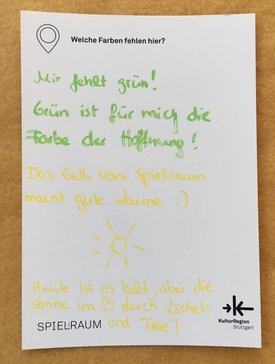 Welche Farben fehlen hier?
Mir fehlt grün!
Grün ist für mich die
Farbe der Hoffnung!
Das Gelb vom Spielraum
macht gute Laune :)
Heute ist es kalt, aber die
Sonne im ♡ durch Lächeln
und Tee!
SPIEL:RAUM
KulturRegion
Stuttgart